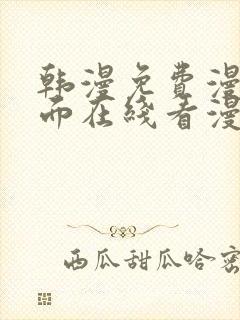 韩漫免费漫
而在线看漫
西瓜甜瓜哈密